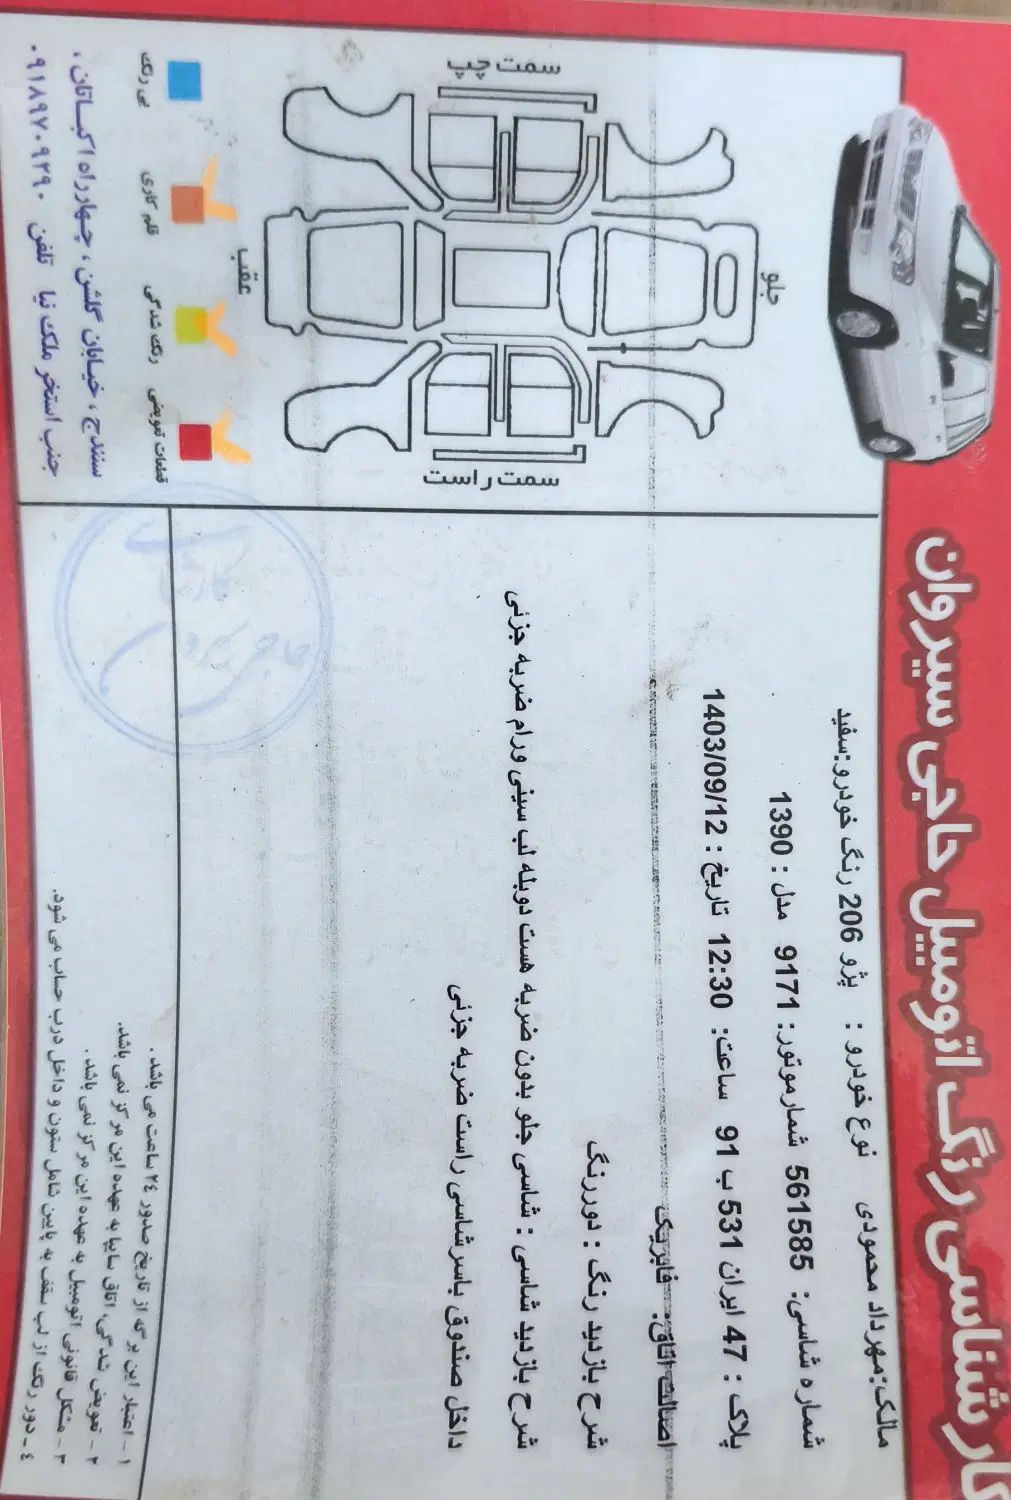 کارشناسی رنگ اتومبیل حاجی سیروان
مالک:مهرداد محمودی نوع خودرو : پژو 206 رنگ خودرو:سفید
شماره شاسی: 561585 شمارموتور: 9171 مدل : 1390
پلاک : 47 ایران 531 ب 91 ساعت: 12:30 تاریخ : 1403/09/12
اصالت اتاق: فابریک
شرح بازدید رنگ : دوررنگ
شرح بازدید شاسی : شاسی جلو بدون ضربه هست دوبله لب سینی ورام ضربه جزئی
داخل صندوق باسرشاسی راست ضربه جزئی
سمت چپ
جلو
عقب
سمت راست
بی رنگ
قلم کاری
رنگ شدگی
قطعات تعویضی
سنندج ، خیابان گلشن ، چهارراه اکباتان ،
جنب استخر ملک نیا تلفن ۰۹۱۸۹۷۰۹۲۹۰
۱ - اعتبار این برگه از تاریخ صدور ۲۴ ساعت می باشد .
۲ - تعویض شدگی، اتاق سایپا به عهده این مرکز نمی باشد.
۳ - مشکل قانونی اتومبیل به عهده این مرکز نمی باشد .
٤ - دور رنگ از لب سقف به پایین شامل ستون و داخل درب حساب می شود.